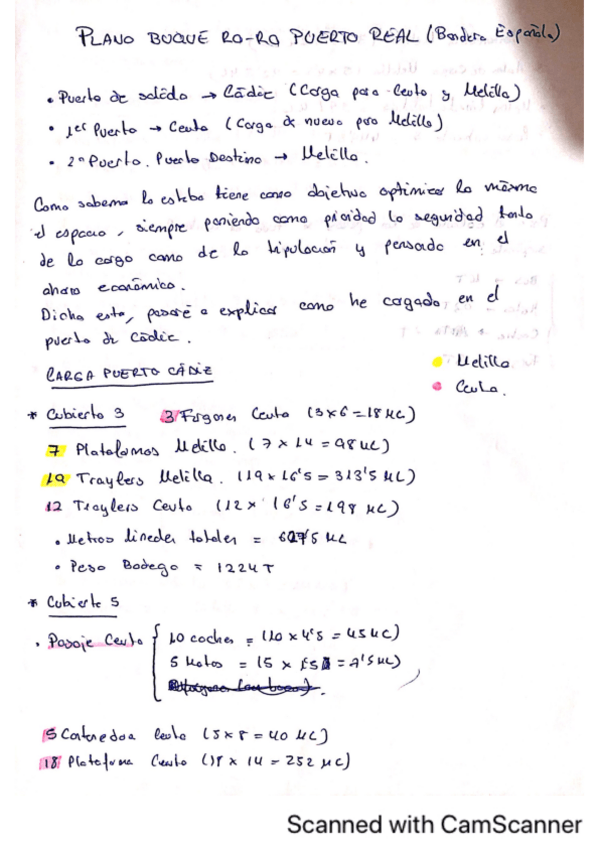 PLANO BUQUE RO-RO PUERTO REAL (Bandera Española)
• Puerto de salida → Cádiz (Carga para Ceuta y Melilla)
• 1er Puerto → Ceuta (Carga de nuevo para Melilla)
• 2º Puerto. Puerto Destino → Melilla.
Como sabemos la estiba tiene como objetivo optimizar lo máximo
el espacio, siempre poniendo como prioridad la seguridad tanto
de la carga como de la tripulación y pensado en el
ahorro económico.
Dicho esto, pasaré a explicar como he cargado en el
puerto de Cádiz.
Melilla
Ceuta.
CARGA PUERTO CÁDIZ
* Cubierta 3 3 Furgones Ceuta (3x6=18 MC)
7 Plataformas Melilla. (7 x 14 = 98 MC)
19 Traylers Melilla. (19 x 16'5 = 313'5 MC)
12 Traylers Ceuta (12 x 16'5 = 198 MC)
• Metros lineales totales = MC
• Peso Bodega = 1224 T
* Cubierta 5
• Pasaje Ceuta { 10 coches = (10 x 4'5 = 45 MC)
5 Motos = (5 x 1'5 = 7'5 MC)
5 Contenedor Ceuta (5 x 8 = 40 MC)
18 Plataforma Ceuta (18 x 14 = 252 MC)
Scanned with CamScanner